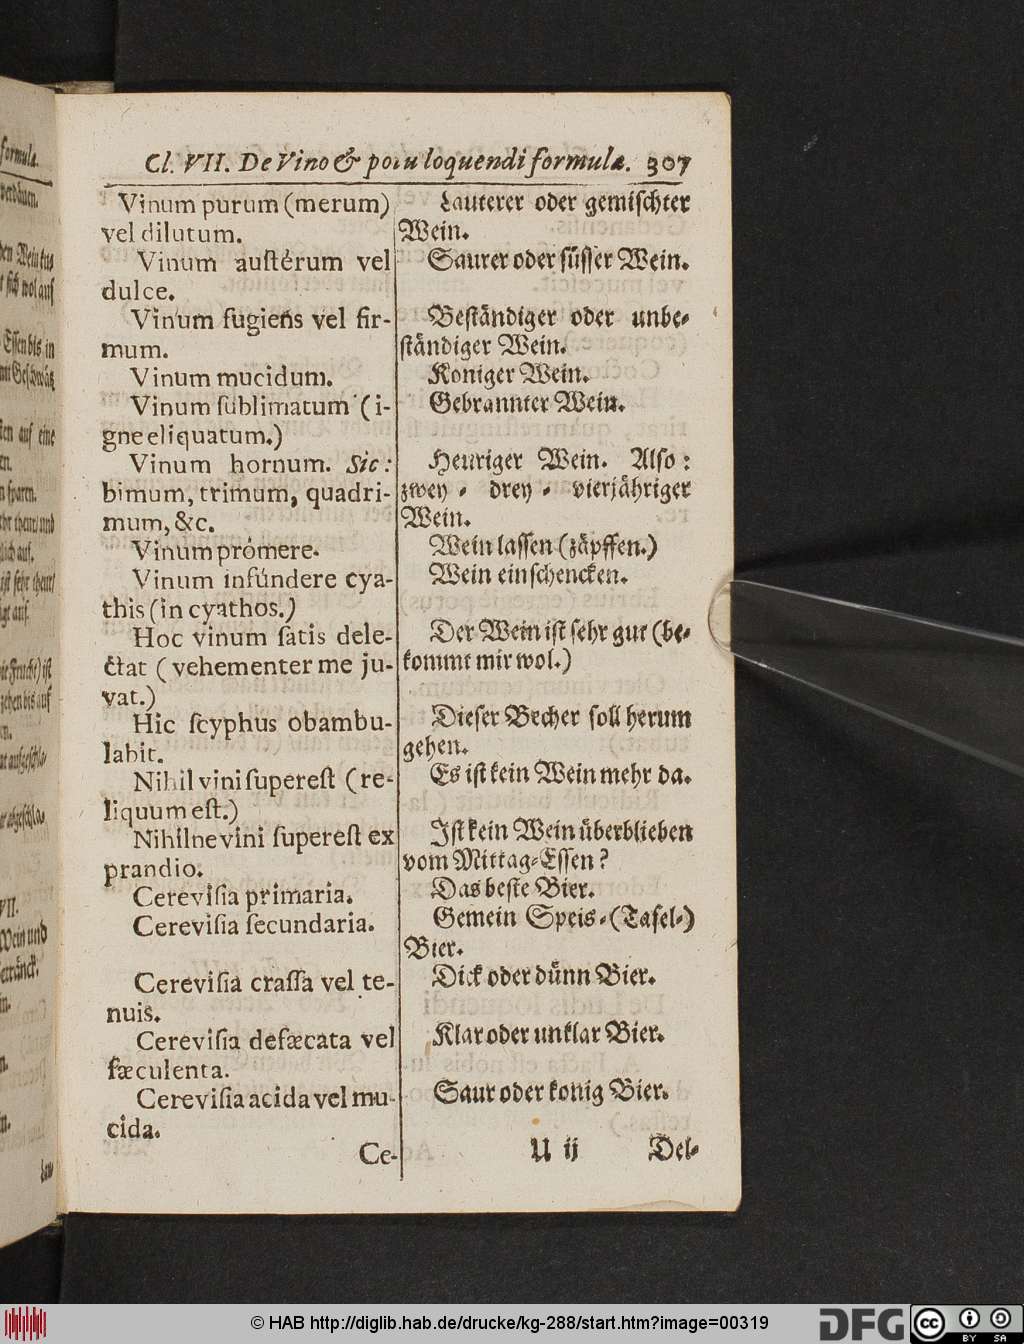 Cl. VII. De Vino & potu loquendi formulæ. 307
Vinum purum (merum)
vel dilutum.
Vinum austérum vel
dulce.
Vinum fugiens vel fir-
mum.
Vinum mucidum.
Vinum ſublimatum (i-
gne eliquatum.)
Vinum hornum. Sic:
bimum, trimum, quadri-
mum, &c.
Vinum prómere.
Vinum infúndere cya-
this (in cyathos.)
Hoc vinum ſatis dele-
ctat (vehementer me ju-
vat.)
Hic ſcyphus obambu-
labit.
Nihil vini ſupereſt (re-
liquum eſt.)
Nihilne vini ſupereſt ex
prandio.
Cereviſia primaria.
Cereviſia ſecundaria.
Cereviſia craſſa vel te-
nuis.
Cereviſia defæcata vel
fæculenta.
Cereviſia acida vel mu-
cida.
Ce-
Lauterer oder gemiſchter
Wein.
Saurer oder ſüſſer Wein.
Beſtändiger oder unbe-
ſtändiger Wein.
Koniger Wein.
Gebrannter Wein.
Heuriger Wein. Alſo:
zwey - drey - vierjähriger
Wein.
Wein laſſen (zäpffen.)
Wein einſchencken.
Der Wein iſt ſehr gut (be-
kommt mir wol.)
Dieſer Becher ſoll herum
gehen.
Es iſt kein Wein mehr da.
Iſt kein Wein überblieben
vom Mittag-Eſſen?
Das beſte Bier.
Gemein Speis-(Tafel-)
Bier.
Dick oder dünn Bier.
Klar oder unklar Bier.
Saur oder konig Bier.
U ij Del-
© HAB http://diglib.hab.de/drucke/kg-288/start.htm?image=00319
DFG
cc BY SA